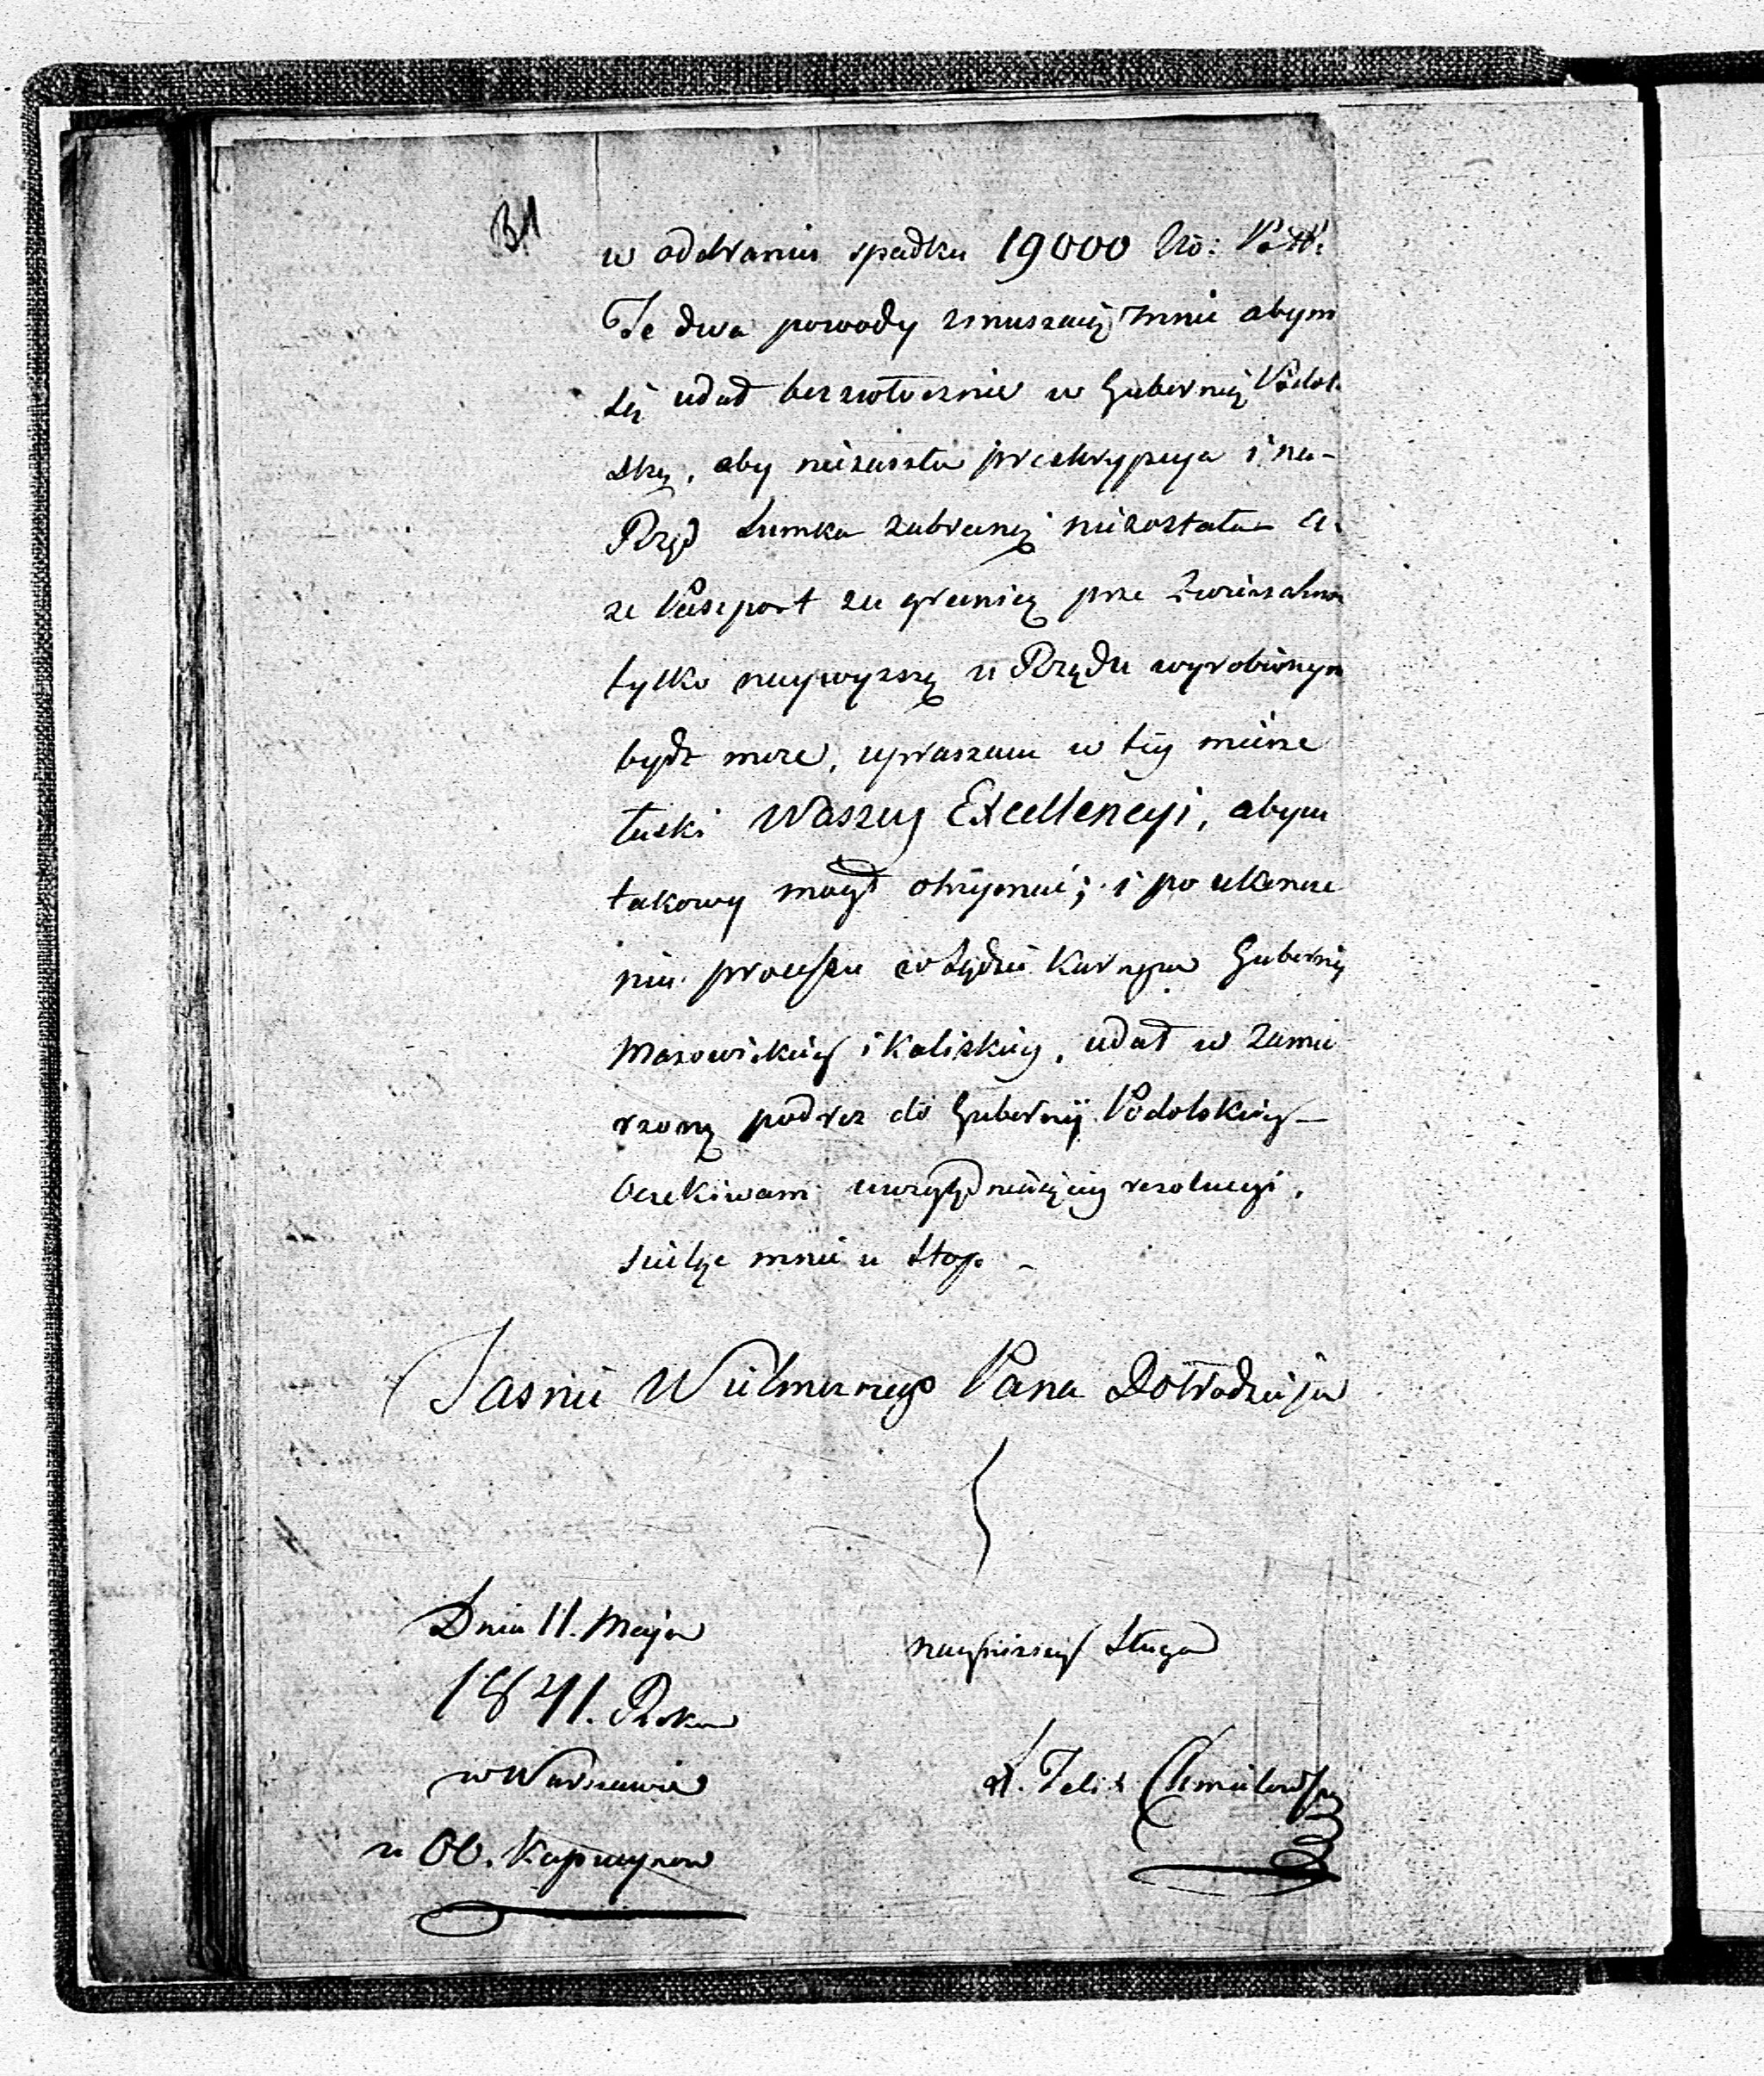 w odebraniu spadku 19000
Te dwa powody zmuszaią mnie abym
się udał bezzwłocznie w Gubernią Podol
ską, aby niezaszła preskrypcya i na
Rząd Sumka zabraną niezostała a
ze Paszport za granicą prze Zwierzchno
tylko naywyzszą u Rządu wyrobionym
bydź moze, upraszam w tey mierze
łaski Waszey Excellencyi, abym
takowy mógł otrzymać; i po ukoncze
niu processu w Sądzie Karnym Gubernij
Mazowieckiey i Kaliskiey, udał w zamie
rzoną podroz do Gubernij Podolskiey —
Oczekiwam uwzględniaiącey rezolucyi,
ścieląc mnie u Stop. —
Jasnie Wielmoznego Pana Dobrodzieja
Dnia 11. Maja
1841. Roku
w Warszawie
u OO. Kapucynow
nayniższy Sługa
X. Felix